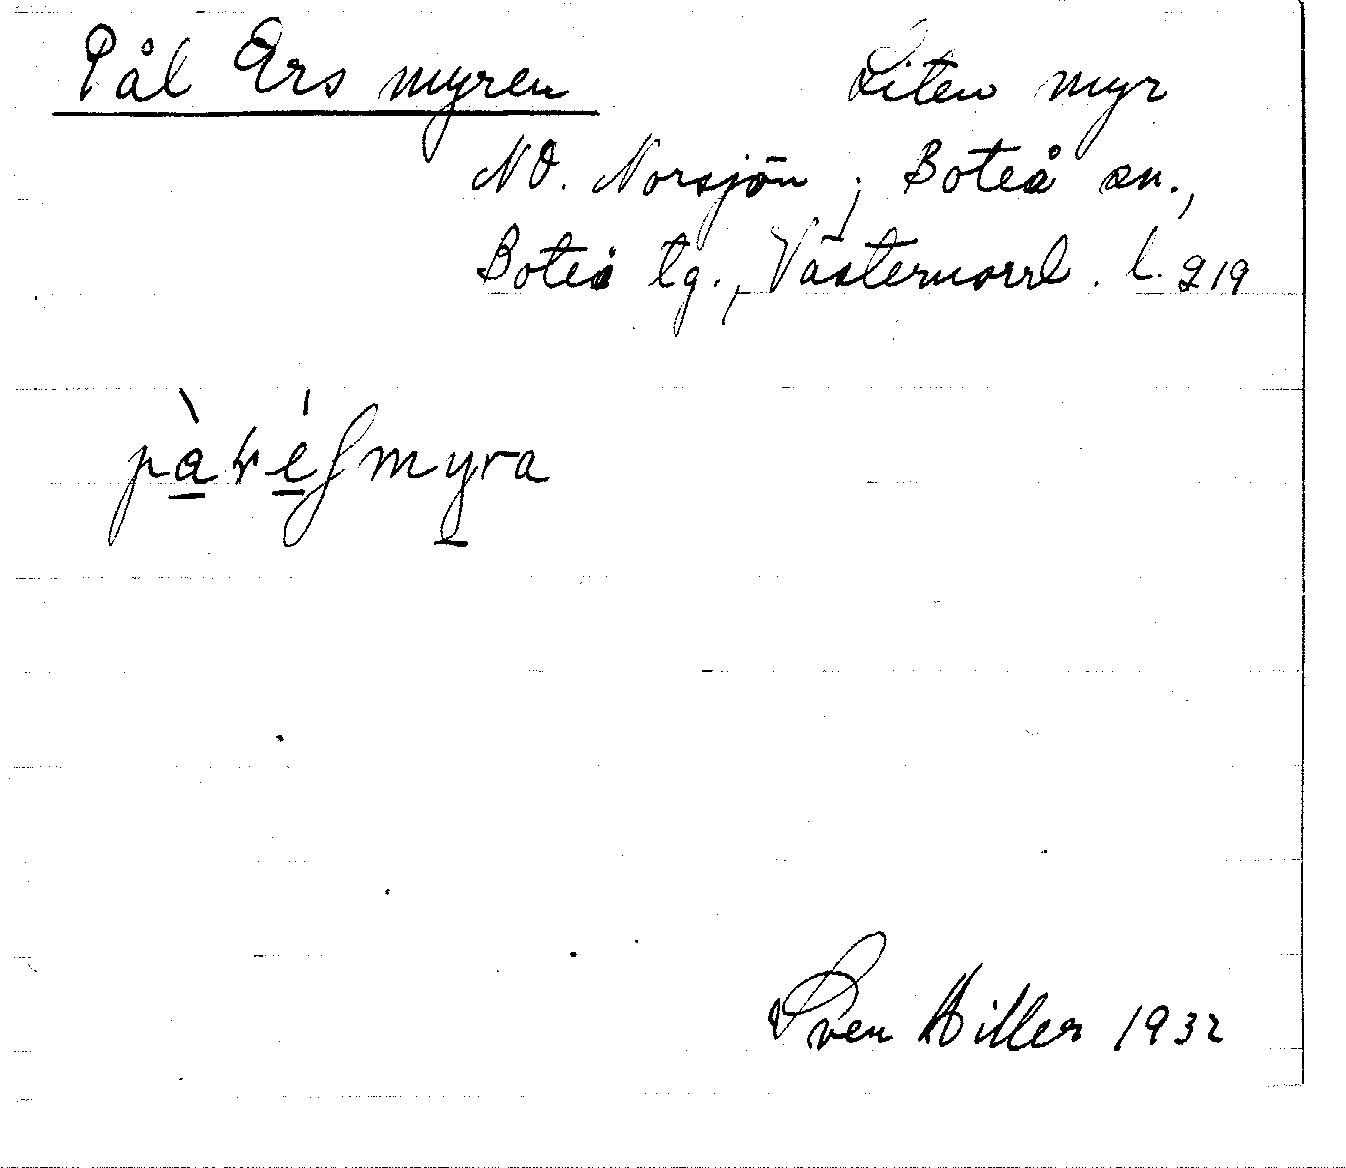 Pål Ers myren Liten myr
NO. Norsjön, Boteå sn.,
Boteå tg., Västernorrl. l. 219
myra
Sven Hiller 1932